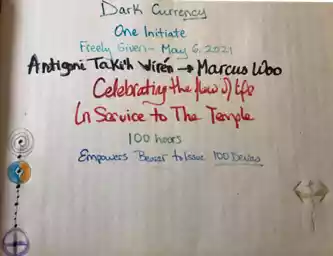 Dark Currency
One Initiate
Freely Given - May 6, 2021
Antigoni Takith Wiren → Marcus Woo
Celebrating the flow of Life
In Service to The Temple
100 hours
Empowers Bearer to Issue 100 Devas